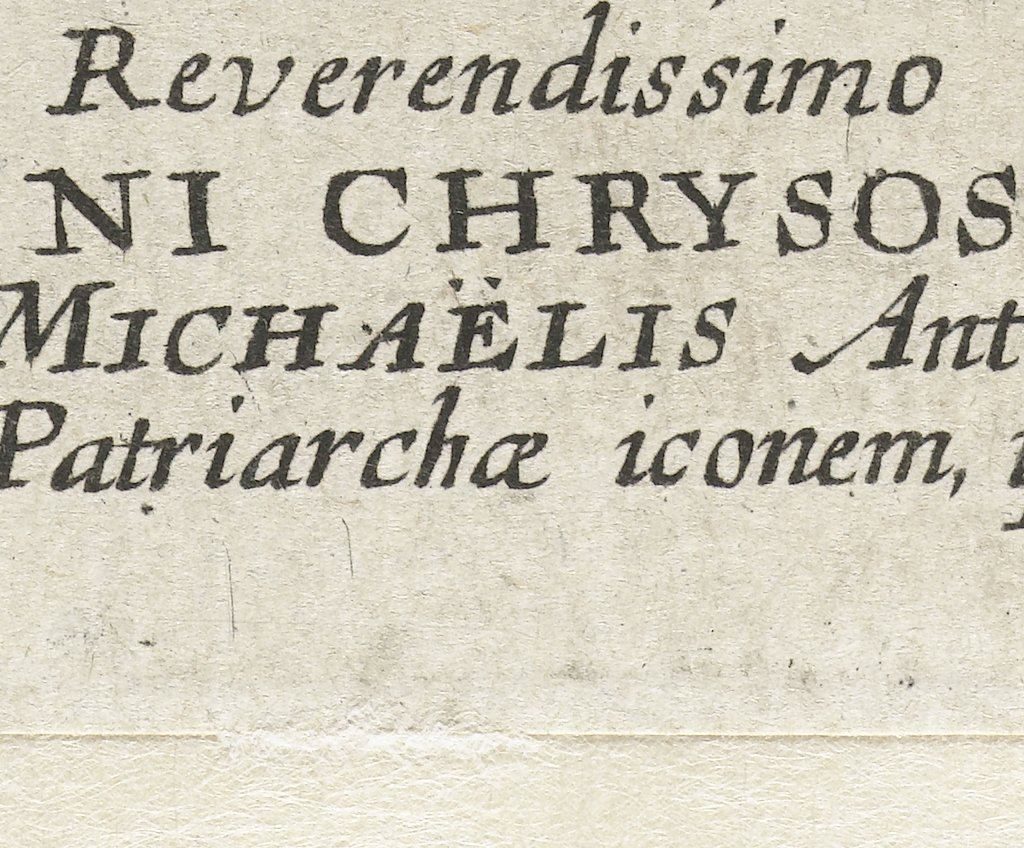 Reverendissimo
NI CHRYSOS
MICHAËLIS Ant
Patriarchæ iconem,